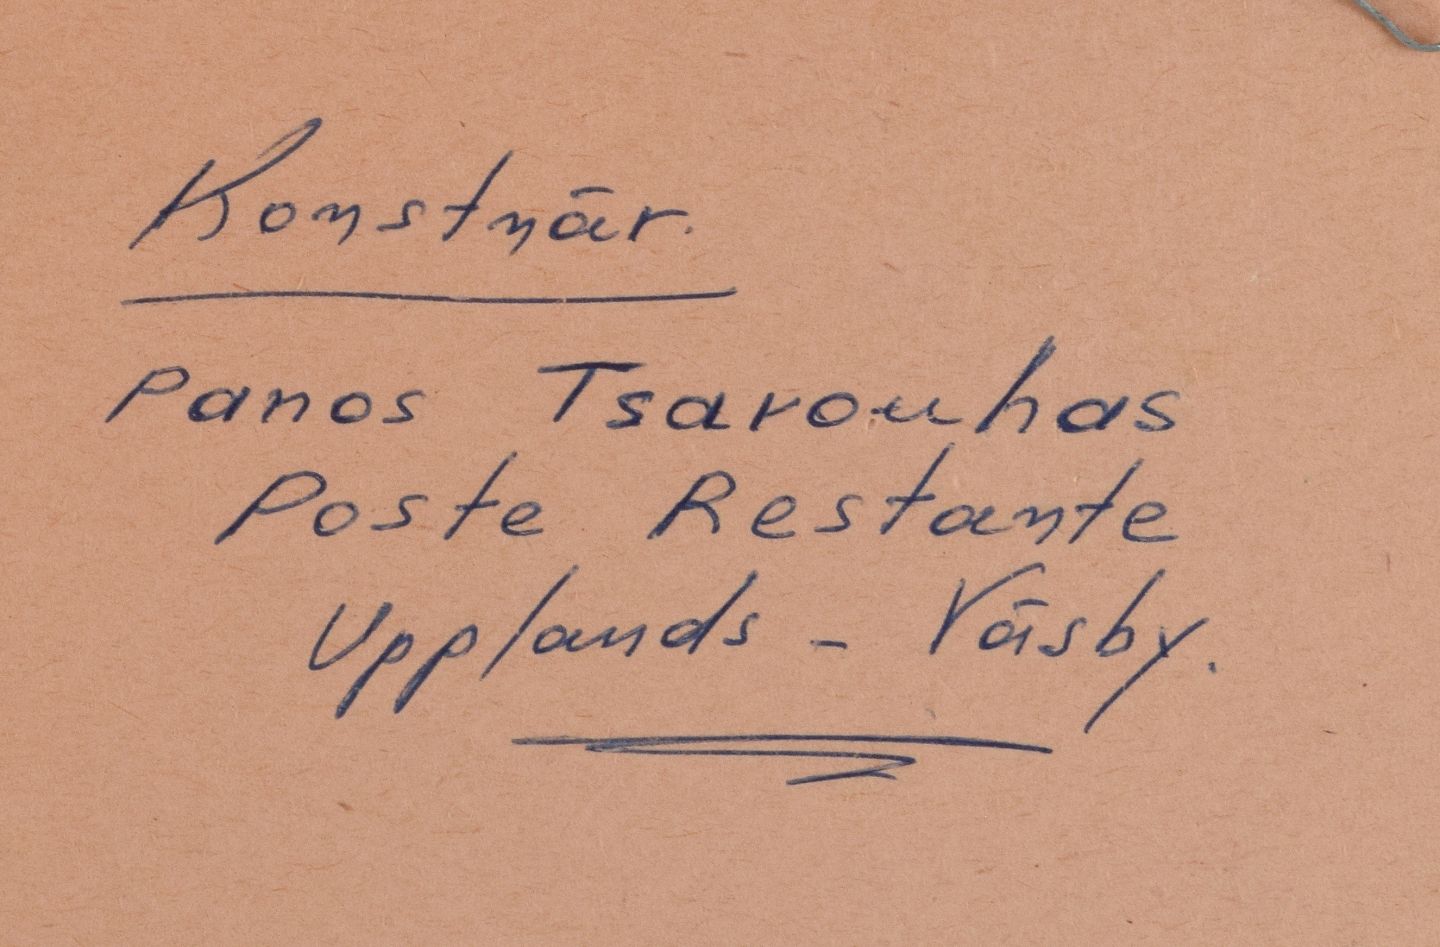 Konstnär.
Panos Tsarouhas
Poste Restante
Upplands - Väsby.